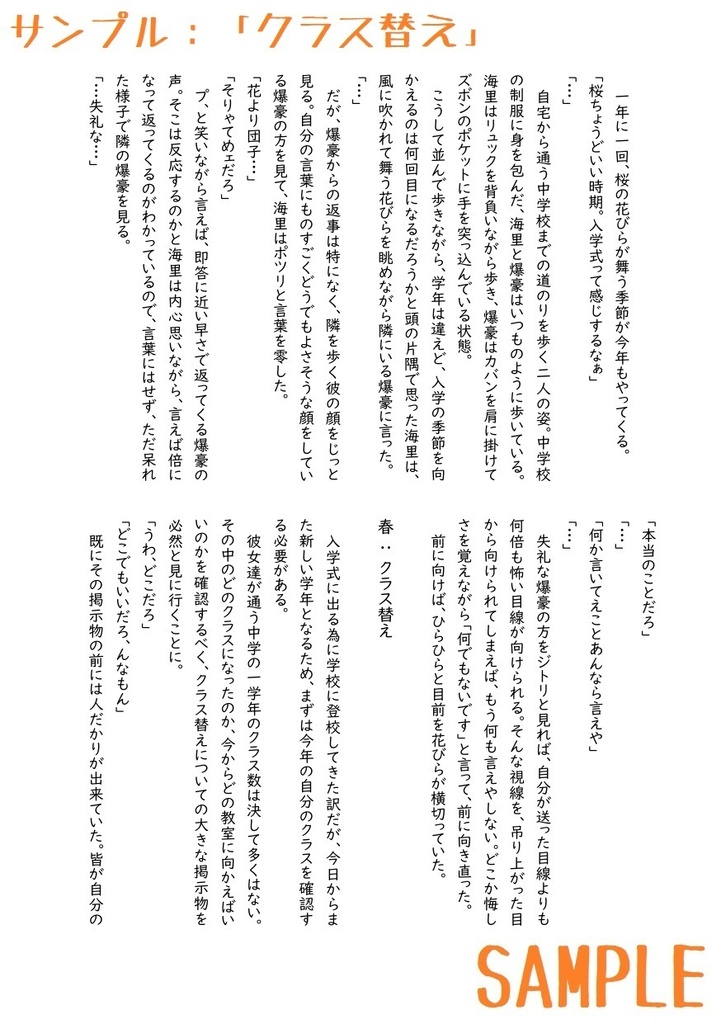 サンプル：「クラス替え」
一年に一回、桜の花びらが舞う季節が今年もやってくる。
「桜ちょうどいい時期。入学式って感じするなぁ」
「…」
自宅から通う中学校までの道のりを歩く二人の姿。中学校
の制服に身を包んだ、海里と爆豪はいつものように歩いている。
海里はリュックを背負いながら歩き、爆豪はカバンを肩に掛けて
ズボンのポケットに手を突っ込んでいる状態。
こうして並んで歩きながら、学年は違えど、入学の季節を向
かえるのは何回目になるだろうかと頭の片隅で思った海里は、
風に吹かれて舞う花びらを眺めながら隣にいる爆豪に言った。
「…」
だが、爆豪からの返事は特になく、隣を歩く彼の顔をじっと
見る。自分の言葉にものすごくどうでもよさそうな顔をしてい
る爆豪の方を見て、海里はポツリと言葉を零した。
「花より団子…」
「そりゃてめェだろ」
プ、と笑いながら言えば、即答に近い早さで返ってくる爆豪の
声。そこは反応するのかと海里は内心思いながら、言えば倍に
なって返ってくるのがわかっているので、言葉にはせず、ただ呆れ
た様子で隣の爆豪を見る。
「…失礼な…」
「本当のことだろ」
「…」
「何か言いてえことあんなら言えや」
「…」
失礼な爆豪の方をジトリと見れば、自分が送った目線よりも
何倍も怖い目線が向けられる。そんな視線を、吊り上がった目
から向けられてしまえば、もう何も言えやしない。どこか悔し
さを覚えながら「何でもないです」と言って、前に向き直った。
前に向けば、ひらひらと目前を花びらが横切っていた。
春：クラス替え
入学式に出る為に学校に登校してきた訳だが、今日からま
た新しい学年となるため、まずは今年の自分のクラスを確認す
る必要がある。
彼女達が通う中学の一学年のクラス数は決して多くはない。
その中のどのクラスになったのか、今からどの教室に向かえばい
いのかを確認するべく、クラス替えについての大きな掲示物を
必然と見に行くことに。
「うわ、どこだろ」
「どこでもいいだろ、んなもん」
既にその掲示物の前には人だかりが出来ていた。皆が自分の
SAMPLE